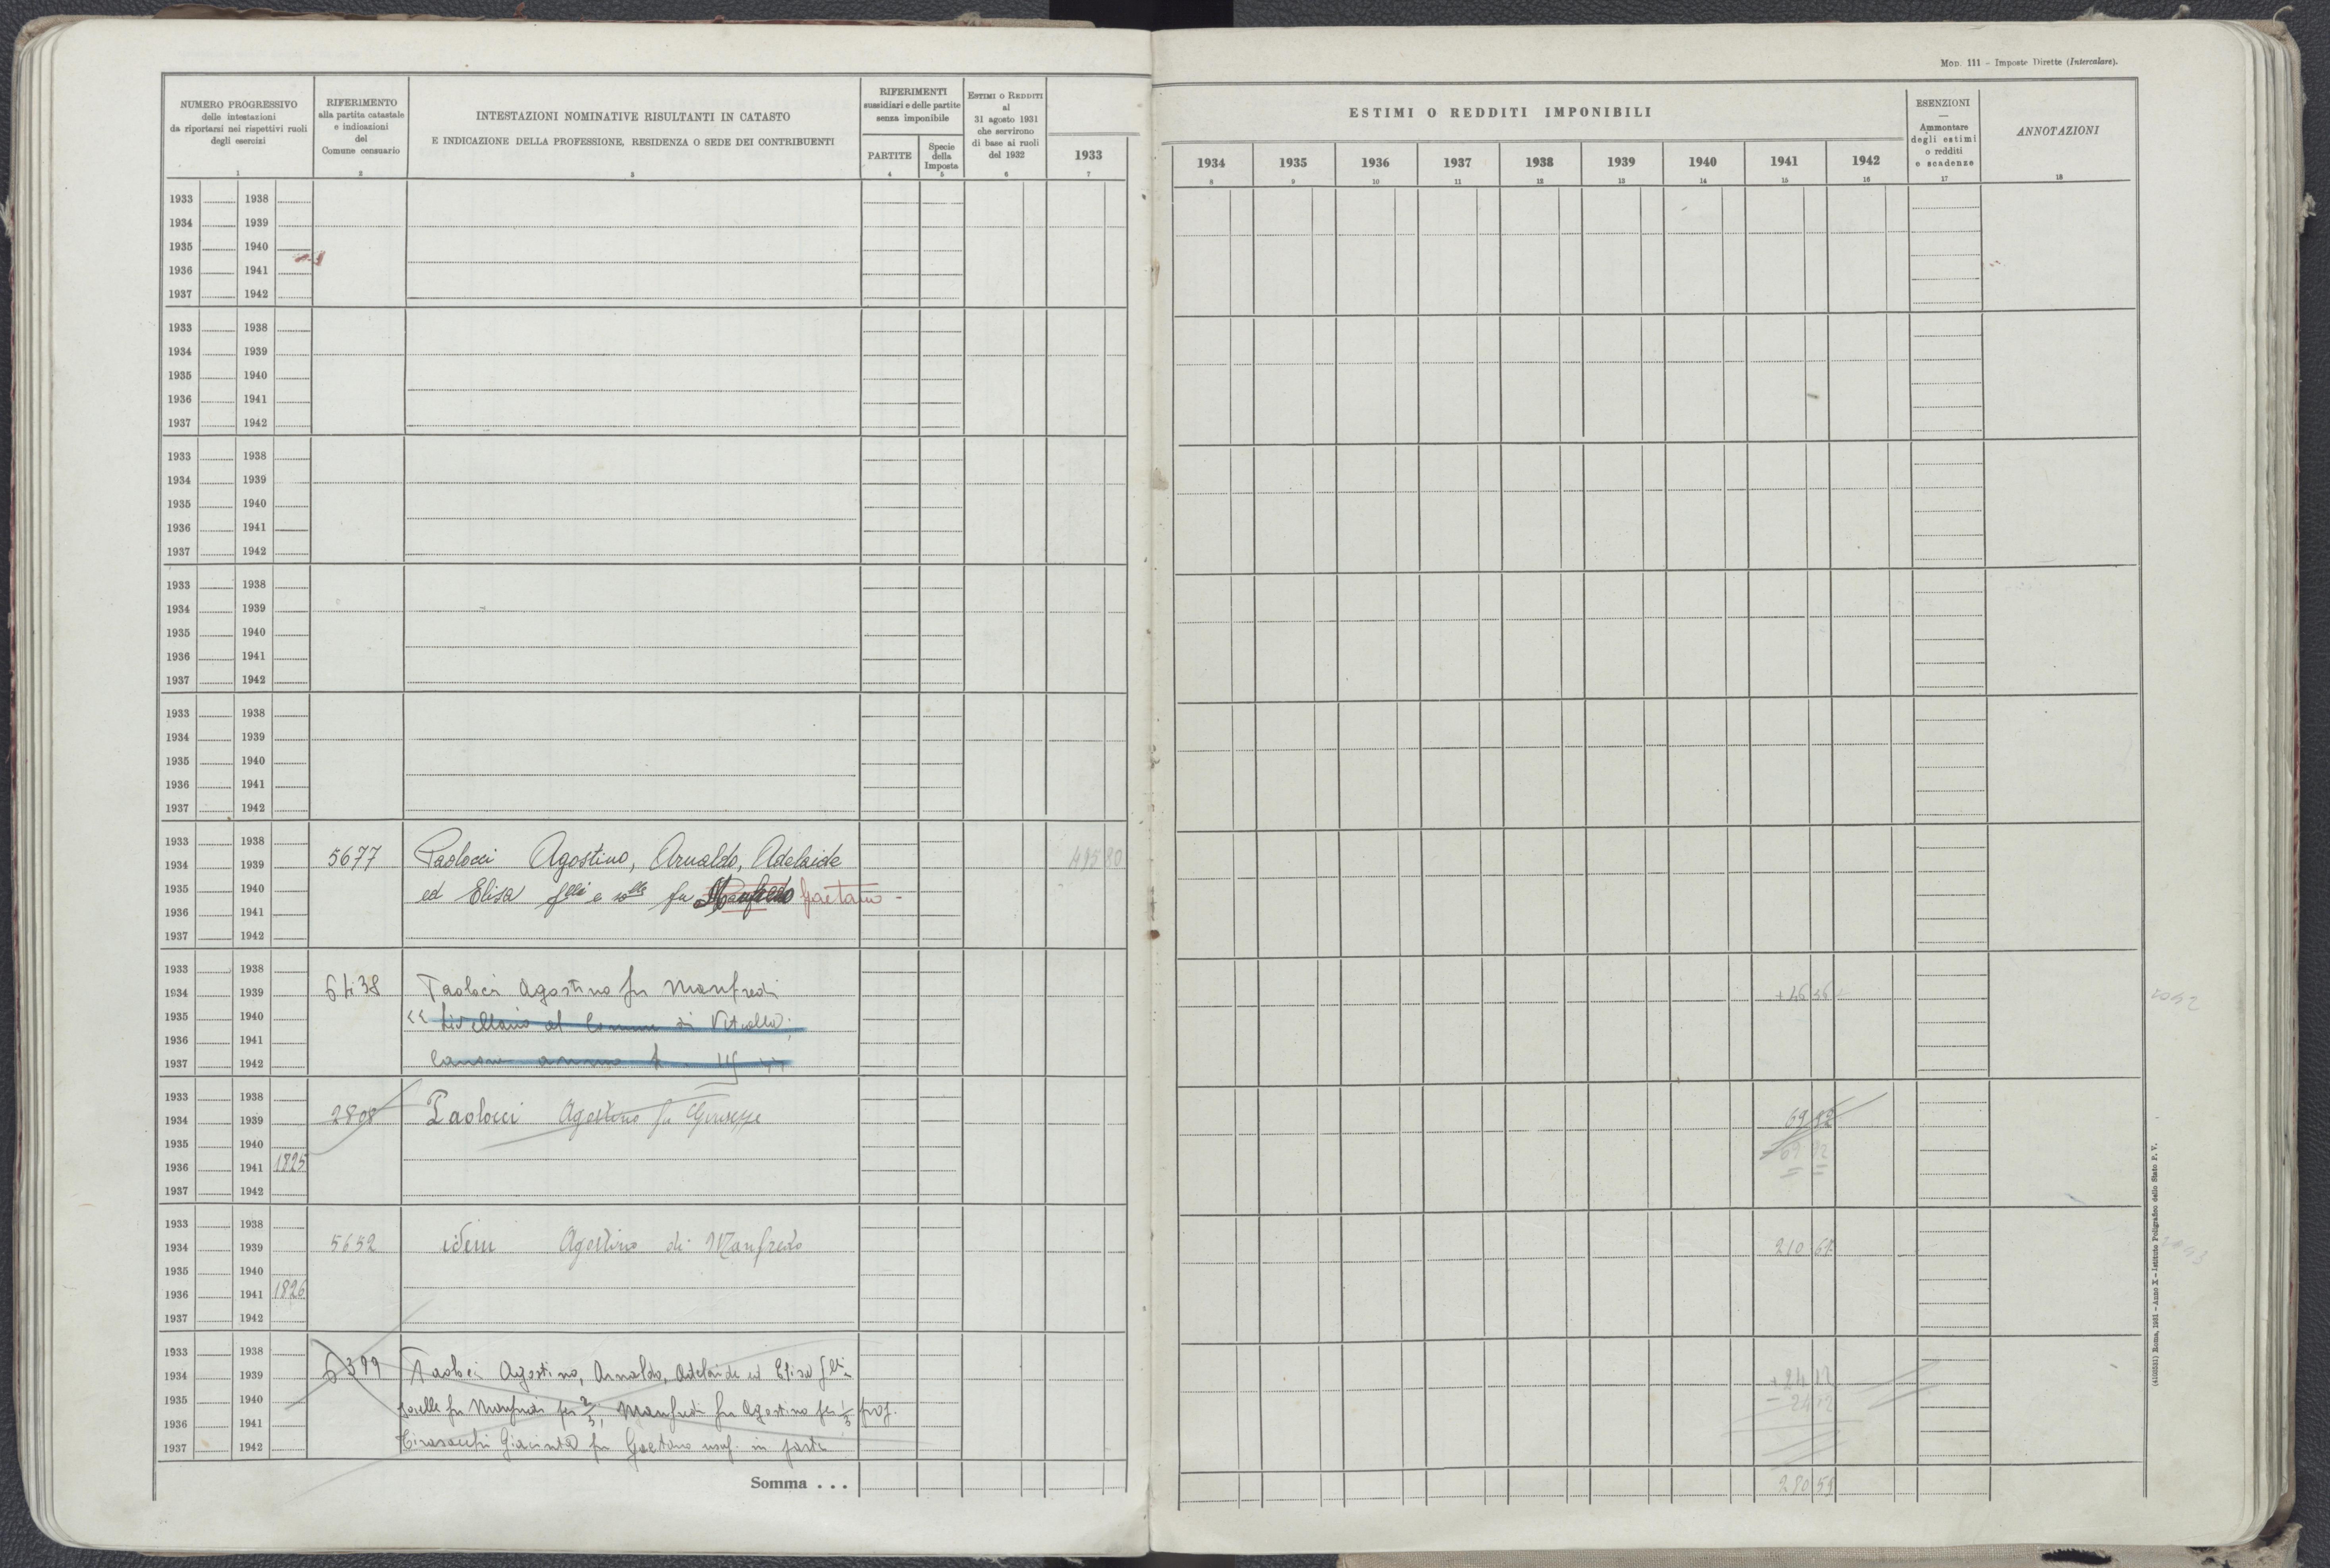 Mod. 111 – Imposte Dirette (Intercalare).
NUMERO PROGRESSIVO
delle intestazioni
da riportarsi nei rispettivi ruoli
degli esercizi
1
RIFERIMENTO
alla partita catastale
e indicazioni
del
Comune censuario
2
INTESTAZIONI NOMINATIVE RISULTANTI IN CATASTO
E INDICAZIONE DELLA PROFESSIONE, RESIDENZA O SEDE DEI CONTRIBUENTI
3
RIFERIMENTI
sussidiari e delle partite
senza imponibile
PARTITE
4
Specie
della
Imposta
5
Estimi o Redditi
al
31 agosto 1931
che servirono
di base ai ruoli
del 1932
6
1933
7
ESTIMI O REDDITI IMPONIBILI
1934 1935 1936 1937 1938 1939 1940 1941 1942
8 9 10 11 12 13 14 15 16
ESENZIONI
—
Ammontare
degli estimi
o redditi
e scadenze
17
ANNOTAZIONI
18
1933 1938
1934 1939
1935 1940
1936 1941
1937 1942
1933 1938
1934 1939
1935 1940
1936 1941
1937 1942
1933 1938
1934 1939
1935 1940
1936 1941
1937 1942
1933 1938
1934 1939
1935 1940
1936 1941
1937 1942
1933 1938
1934 1939
1935 1940
1936 1941
1937 1942
1933 1938
1934 1939 5677 Paolocci Agostino, Arnaldo, Adelaide 495 80
1935 1940 ed Elisa f.lli e s.lle fu Manfredo Gaetano -
1936 1941
1937 1942
1933 1938
1934 1939 6438 Paolocci Agostino fu Manfredi
1935 1940 Livellario al Comune di Vetralla
1936 1941
1937 1942 Canone annuo
1933 1938
1934 1939 2808 Paolocci Agostino fu Giuseppe 69 92
1935 1940 69 92
1936 1941 1825
1937 1942
1933 1938
1934 1939 5652 idem Agostino di Manfredo 210 67
1935 1940
1936 1941 1826
1937 1942
1933 1938
1934 1939 6399 Paolocci Agostino, Arnaldo, Adelaide ed Elisa f.lli + 24 12
1935 1940 sorelle fu Manfredi per 2/3, Manfredi fu Agostino per 1/3 prop. – 24 12
1936 1941
1937 1942 Giacinta fu Gaetano usuf. in parte
Somma . . . 280 59
(4103531) Roma, 1931 – Anno X – Istituto Poligrafico dello Stato P. V.